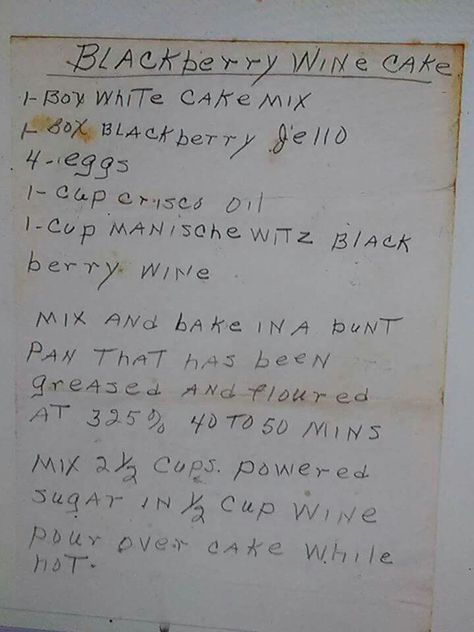 BLACKberry WINe CAKe
1-BOX WHITe CAKe MIX
1-BOX BLACKberry Jello
4-eggs
1-CUP Crisco OIl
1-CUP MANIScheWITZ BlACK
berry WINe
MIX ANd bAKe IN A bUNT
PAN ThAT hAS beeN
greASed ANd FlOUred
AT 325% 40 TO 50 MINS
MIX 2½ CUPS. powered
SUgAr IN ½ CUP WINe
POUr Over CAKe While
hOT.